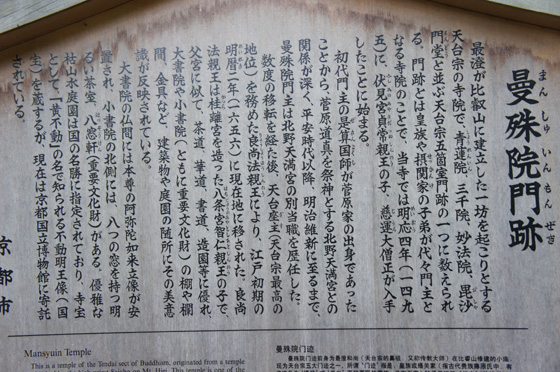 曼殊院門跡
まんしゅいんもんぜき
最澄が比叡山に建立した一坊を起こりとする
天台宗の寺院で、青蓮院、三千院、妙法院、毘沙
門堂と並ぶ天台宗五箇室門跡の一つに数えられ
る。門跡とは皇族や摂関家の子弟が代々門主と
なる寺院のことで、当寺では明応四年(一四九
五)に、伏見宮貞常親王の子、慈運大僧正が入寺
したことに始まる。
初代門主の是算国師が菅原家の出身であった
ことから、菅原道真を祭神とする北野天満宮との
関係が深く、平安時代以降、明治維新に至るまで、
曼殊院門主は北野天満宮の別当職を歴任した。
数度の移転を経た後、天台座主(天台宗最高の
地位)を務めた良尚法親王により、江戸初期の
明暦二年(一六五六)に現在地に移された。良尚
法親王は桂離宮を造った八条宮智仁親王の子で、
父宮に似て、茶道、華道、書道、造園等に優れ、
大書院や小書院(ともに重要文化財)の棚や欄
間、金具など、建築物や庭園の随所にその美意
識が反映されている。
大書院の仏間には本尊の阿弥陀如来立像が安
置され、小書院の北側には、八つの窓を持つ明
るい茶室、八窓軒(重要文化財)がある。優雅な
枯山水庭園は国の名勝に指定されており、寺宝
として、「黄不動」の名で知られる不動明王像(国
宝)を蔵するが、現在は京都国立博物館に寄託
されている。
京都市
Mansyuin Temple
This is a temple of the Tendai sect of Buddhism, originated from a temple
曼殊院门迹